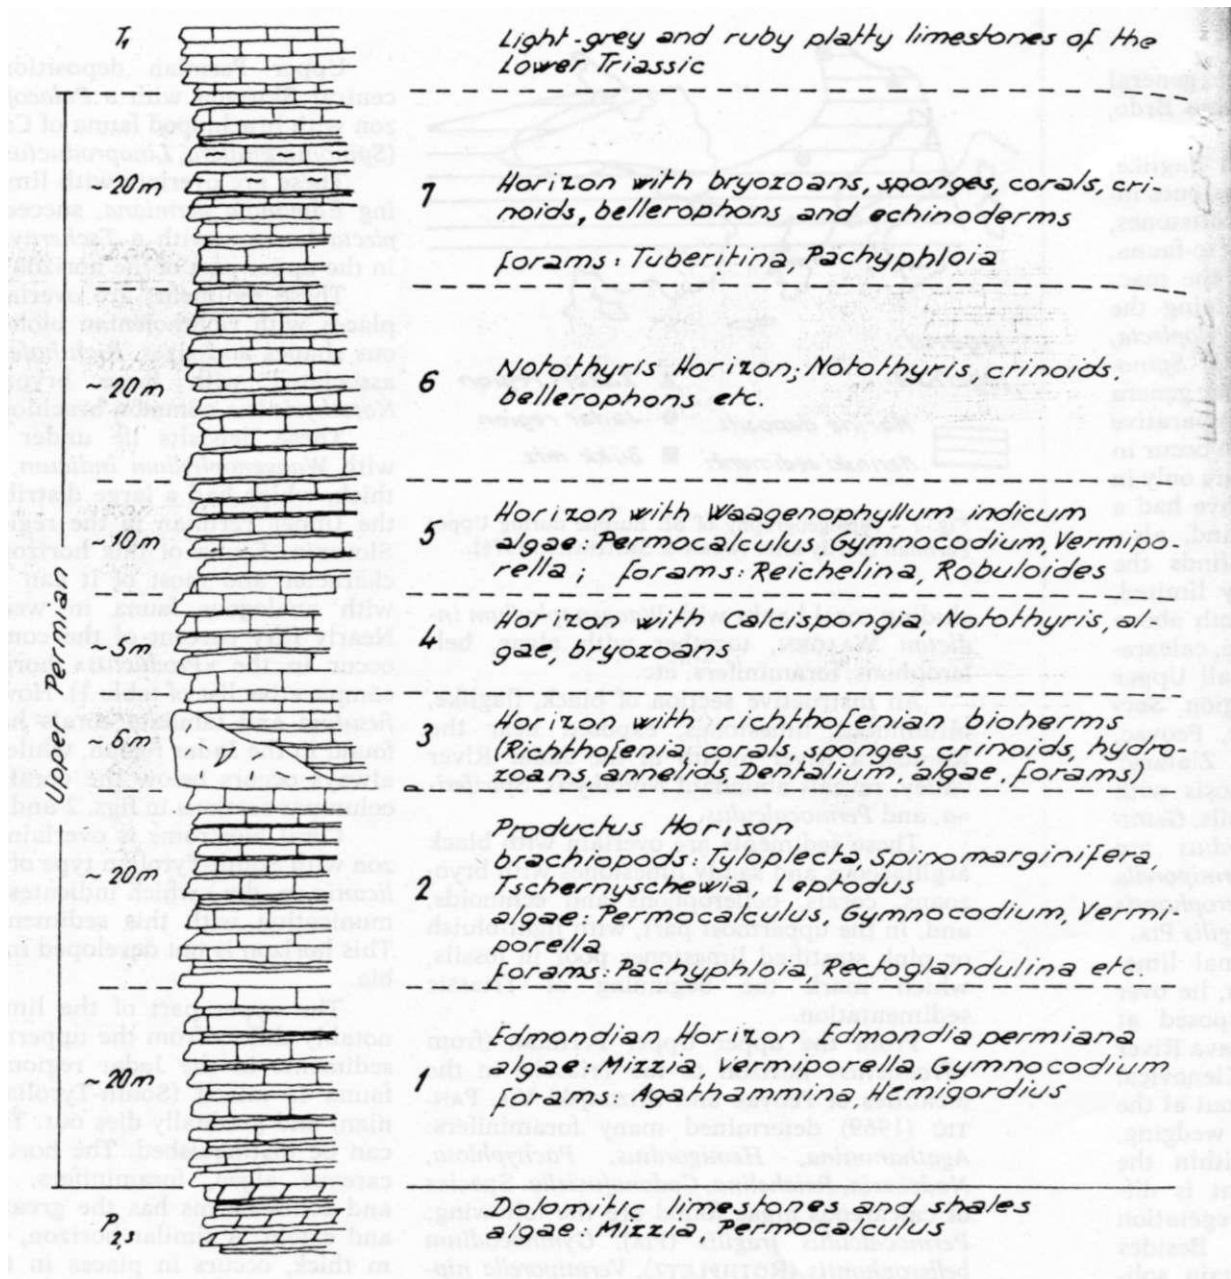 T₁
Light-grey and ruby platty limestones of the
Lower Triassic
~20m
7
Horizon with bryozoans, sponges, corals, cri-
noids, bellerophons and echinoderms
forams: Tuberitina, Pachyphloia
~20m
6
Notothyris Horizon; Notothyris, crinoids.
bellerophons etc.
~10m
5
Horizon with Waagenophyllum indicum
algae: Permocalculus, Gymnocodium, Vermipo-
rella; forams: Reichelina, Robuloides
~5m
4
Horizon with Calcispongia, Notothyris, al-
gae, bryozoans
Upper Permian
~6m
3
Horizon with richthofenian bioherms
(Richthofenia, corals, sponges crinoids, hydro-
zoans, annelids, Dentalium, algae, forams)
~20m
2
Productus Horison
brachiopods: Tyloplecta, Spinomarginifera
Tschernyschewia, Leptodus
algae: Permocalculus, Gymnocodium, Vermi-
porella
forams: Pachyphloia, Rectoglandulina etc.
~20m
1
Edmondian Horizon Edmondia permiana
algae: Mizzia, Vermiporella, Gymnocodium
forams: Agathammina, Hemigordius
P₂,₃
Dolomitic limestones and shales
algae: Mizzia, Permocalculus